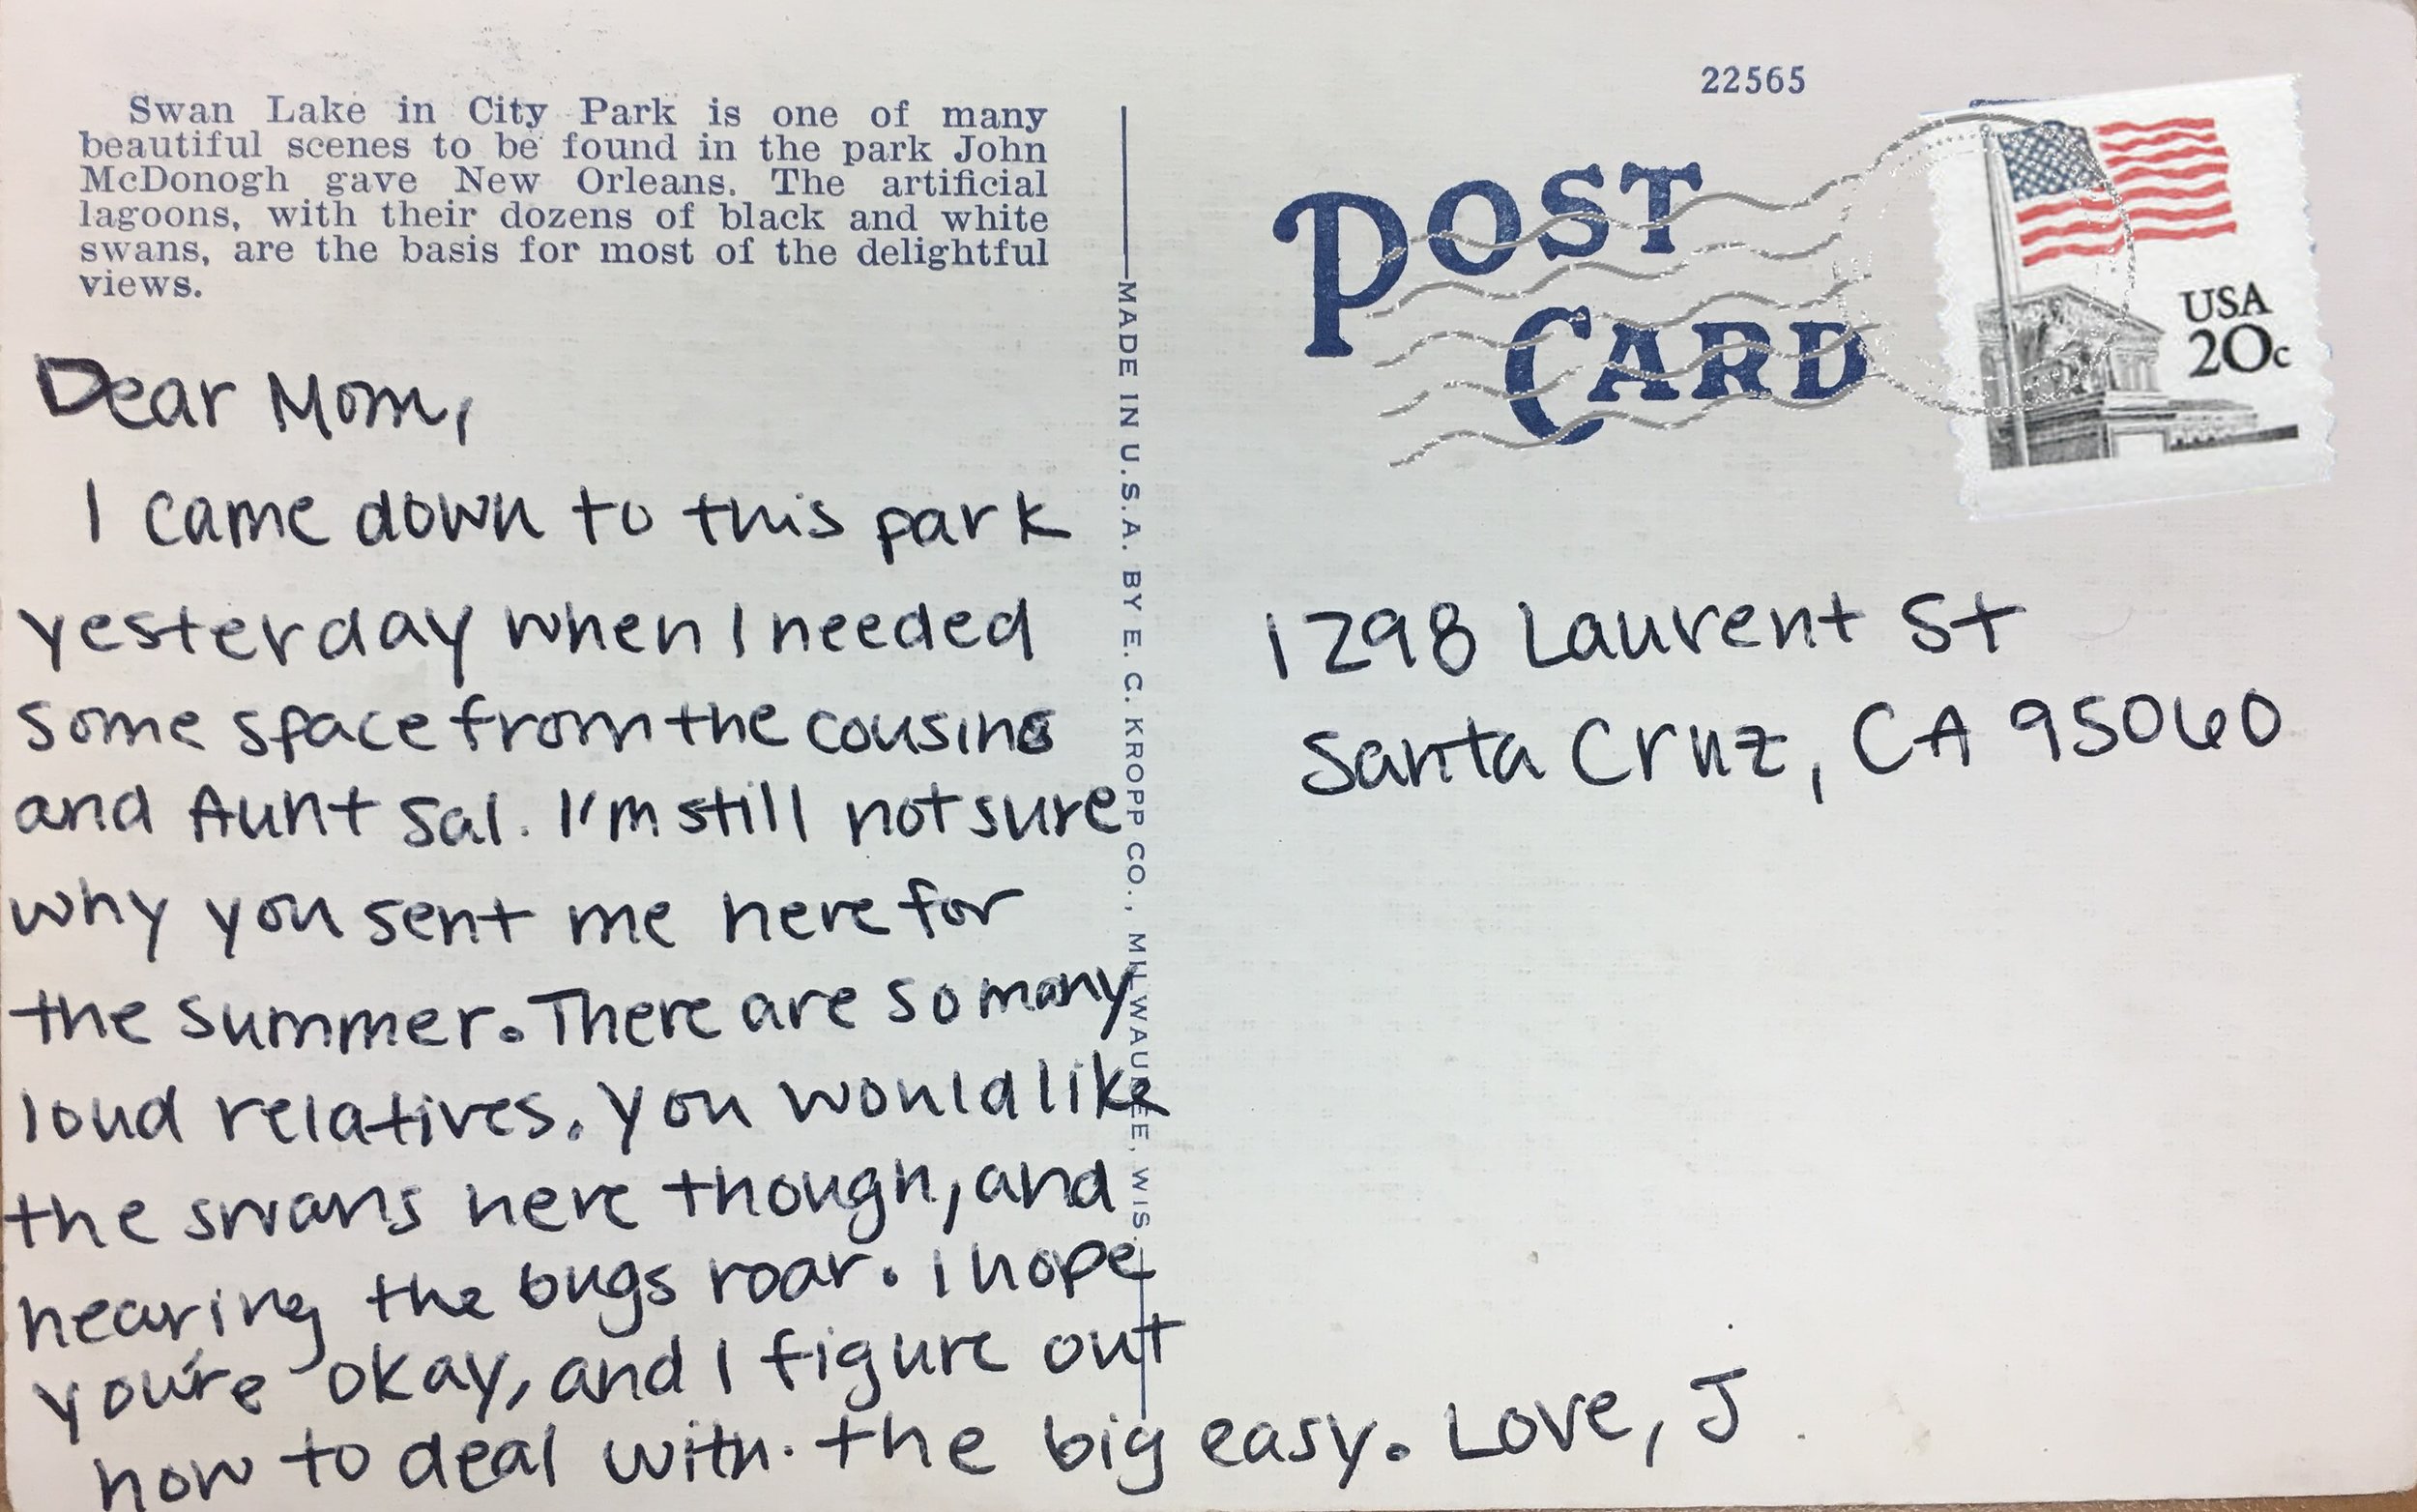 Swan Lake in City Park is one of many
beautiful scenes to be found in the park John
McDonogh gave New Orleans. The artificial
lagoons, with their dozens of black and white
swans, are the basis for most of the delightful
views.
Dear Mom,
I came down to this park
yesterday when I needed
some space from the cousins
and Aunt Sal. I'm still not sure
why you sent me here for
the summer. There are so many
loud relatives. You would like
the swans here though, and
hearing the bugs roar. I hope
you're okay, and I figure out
how to deal with the big easy. Love, J
MADE IN U.S.A. BY E. C. KROPP CO., MILWAUKEE, WIS.
22565
POST
CARD
USA
20c
1298 Laurent St
Santa Cruz, CA 95060